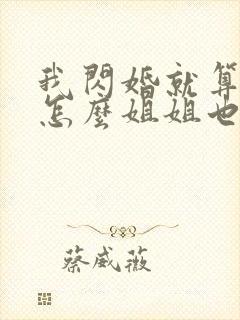 我閃婚就算
怎麼姐姐也
蔡威薇